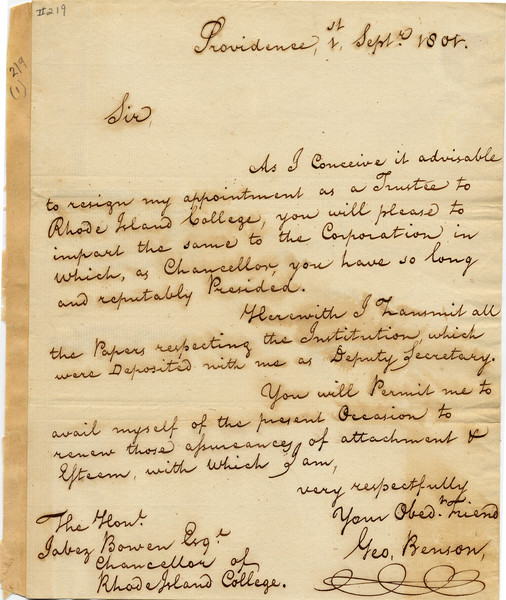 #219
219
(1)
Providence, 1st Septr. 1801.
Sir,
As I Conceive it advisable
to resign my appointment as a Trustee to
Rhode Island College, you will please to
impart the same to the Corporation in
which, as Chancellor, you have so long
and reputably Presided.
Herewith I Transmit all
the Papers respecting the Institution, which
were Deposited with me as Deputy Secretary.
You will Permit me to
avail myself of the present Occasion to
renew those aſsureances of attachment &
Eſteem, with which I am,
very respectfully
Your Obedt. Friend
Geo, Benson,
The Honl.
Jabez Bowen Esqr.
Chancellor of
Rhode Island College.